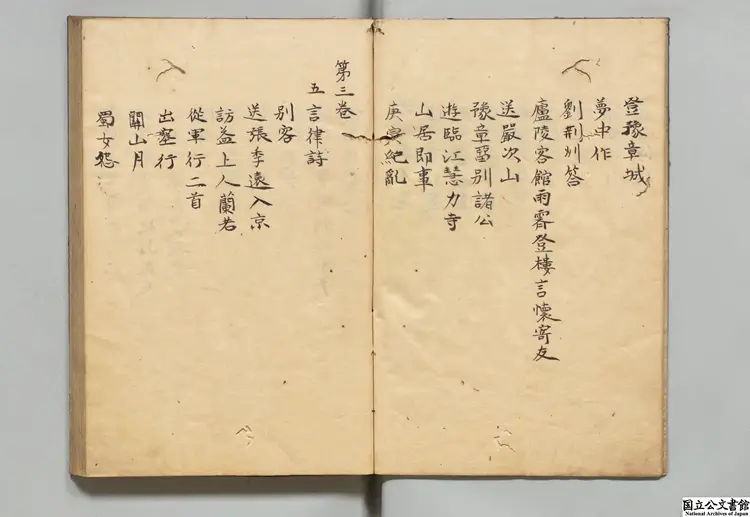 登豫章城
夢中作
劉荆州答
廬陵客館雨霽登樓言懷寄友
送嚴次山
豫章留別諸公
遊臨江慧力寺
山居即事
庚寅紀亂
第三卷
五言律詩
別客
送張季遠入京
訪益上人蘭若
從軍行二首
出塞行
關山月
蜀女怨
国立公文書館
National Archives of Japan